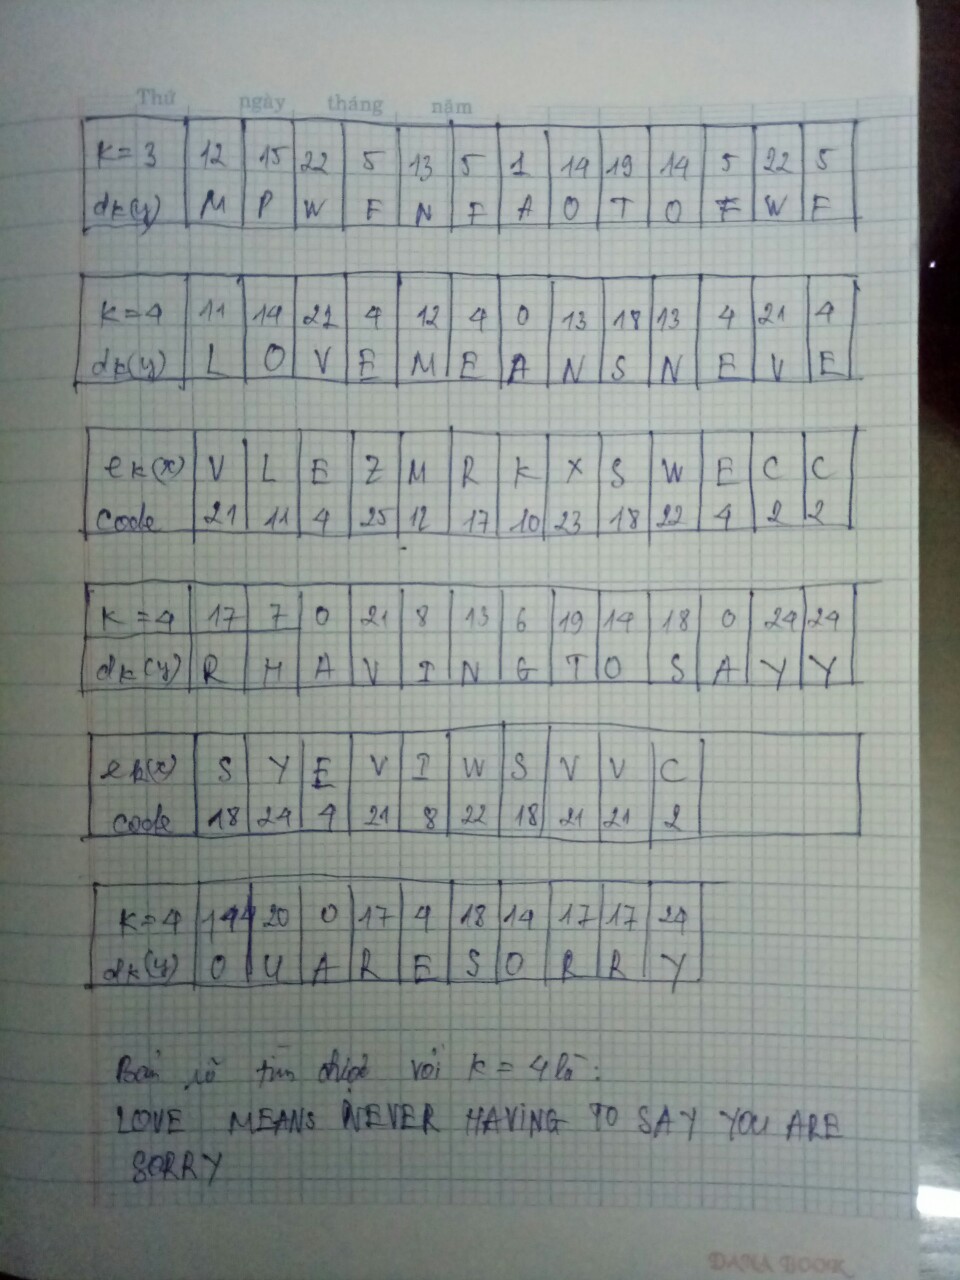 Thứ ngày tháng năm
K=3 12 15 22 5 13 5 1 14 19 14 5 22 5
dk(y) M P W F N F A O T O F W F
K=4 11 14 21 4 12 4 0 13 18 13 4 21 4
dk(y) L O V E M E A N S N E V E
ek(x) V L E Z M R K X S W E C C
Code 21 11 4 25 12 17 10 23 18 22 4 2 2
K=4 17 7 0 21 8 13 6 19 14 18 0 24 24
dk(y) R H A V I N G T O S A Y Y
ek(x) S Y E V I W S V V C
code 18 24 4 21 8 22 18 21 21 2
K=4 14 20 0 17 4 18 14 17 17 24
dk(y) O U A R E S O R R Y
Bản rõ tìm được với K = 4 là:
LOVE MEANS NEVER HAVING TO SAY YOU ARE
SORRY
DANA BOOK